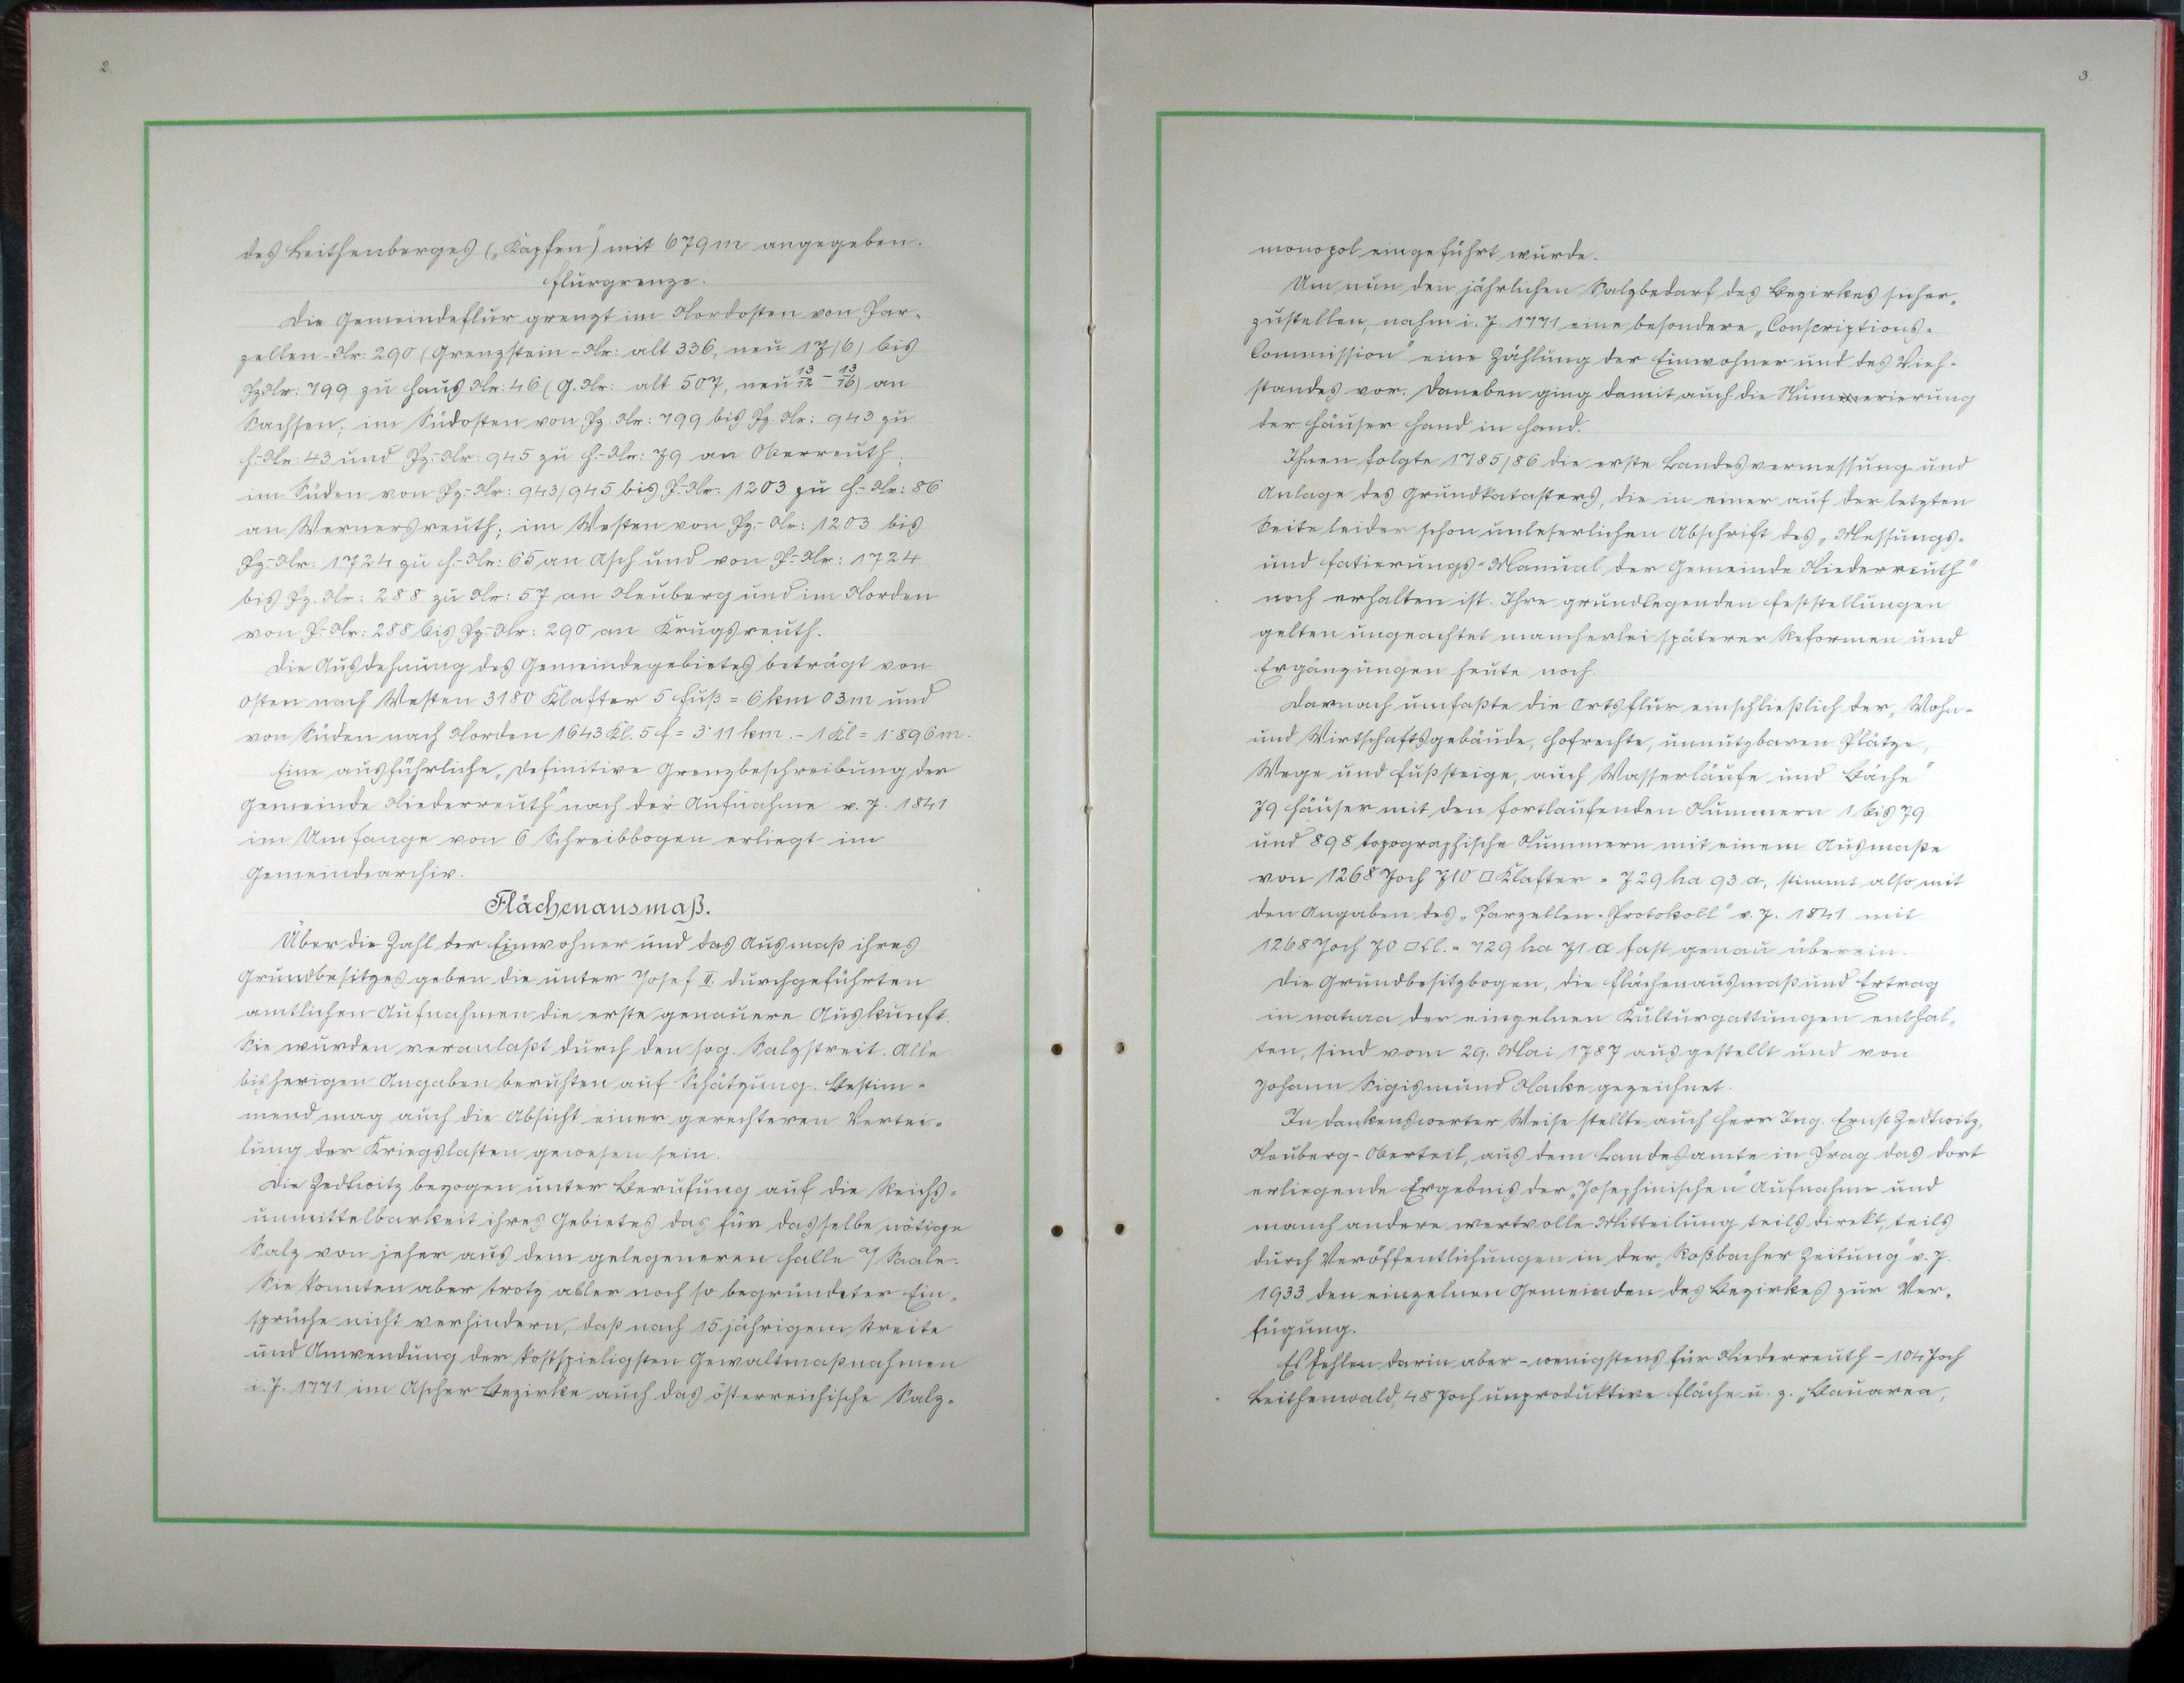 2.
des Leithenberges („Kapfen“) mit 679 m angegeben.
Flurgrenze.
Die Gemeindeflur grenzt im Nordosten von Par-
zellen-Nr: 290 (Grenzstein-Nr: alt 336, neu 17/6) bis
Pz Nr: 799 zu Haus Nr: 46 (G. Nr: alt 507, neu 13/12 - 13/16) an
Sachsen; im Südosten von Pz. Nr: 799 bis Pz. Nr: 943 zu
H.-Nr: 43 und Pz.-Nr: 945 zu H.-Nr: 79 an Oberreuth;
im Süden von Pz-Nr: 943/945 bis P-Nr: 1203 zu H.-Nr: 86
an Wernersreuth; im Westen von Pz.-Nr: 1203 bis
Pz-Nr: 1724 zu H-Nr: 65 an Asch und von P-Nr: 1724
bis Pz. Nr: 288 zu Nr: 57 an Neuberg und im Norden
von P-Nr: 288 bis Pz-Nr: 290 an Krugsreuth.
Die Ausdehnung des Gemeindegebietes beträgt von
Osten nach Westen 3180 Klafter 5 Fuß = 6 km 03 m und
von Süden nach Norden 1643 Kl. 5 F = 3·11 km. - 1 Kl = 1·896 m.
Eine ausführliche „Definitive Grenzbeschreibung der
Gemeinde Niederreuth“ nach der Aufnahme v. J. 1841
im Umfange von 6 Schreibbogen erliegt im
Gemeindearchiv.
Flächenausmaß.
Über die Zahl der Einwohner und das Ausmaß ihres
Grundbesitzes geben die unter Josef II. durchgeführten
amtlichen Aufnahmen die erste genauere Auskunft.
Sie wurden veranlaßt durch den sog. Salzstreit. Alle
bisherigen Angaben beruhten auf Schätzung. Bestim-
mend mag auch die Absicht einer gerechteren Vertei-
lung der Kriegslasten gewesen sein.
Die Zedtwitz bezogen unter Berufung auf die Reichs-
unmittelbarkeit ihres Gebietes das für dasselbe nötige
Salz von jeher aus dem gelegeneren Halle a/ Saale.
Sie konnten aber trotz aller noch so begründeter Ein-
sprüche nicht verhindern, daß nach 15 jährigem Streite
und Anwendung der kostspieligsten Gewaltmaßnahmen
i. J. 1771 im Ascher Bezirke auch das österreichische Salz-
3.
monopol eingeführt wurde.
Um nun den jährlichen Salzbedarf des Bezirkes sicher-
zustellen, nahm i. J. 1771 eine besondere „Conscriptions-
Commission“ eine Zählung der Einwohner und des Vieh-
standes vor. Daneben ging damit auch die Nummerierung
der Häuser Hand in Hand.
Ihnen folgte 1785/86 die erste Landesvermessung und
Anlage des Grundkatasters, die in einer auf der letzten
Seite leider schon unleserlichen Abschrift des „Messungs-
und Fatierungs-Manual der Gemeinde Niederreuth“
noch erhalten ist. Ihre grundlegenden Feststellungen
gelten ungeachtet mancherlei späterer Reformen und
Ergänzungen heute noch.
Darnach umfaßte die Ortsflur einschließlich der „Wohn-
und Wirtschaftsgebäude, Hofrechte, unnutzbaren Plätze,
Wege und Fußsteige, auch Wasserläufe und Bäche“
79 Häuser mit den fortlaufenden Nummern 1 bis 79
und 898 topographische Nummern mit einem Ausmaße
von 1268 Joch 710 □ Klafter = 729 ha 93 a, stimmt also mit
den Angaben des „Parzellen-Protokoll“ v. J. 1841 mit
1268 Joch 70 □Kl. = 729 ha 71 a fast genau überein.
Die Grundbesitzbogen, die Flächenausmaß und Ertrag
in natura der einzelnen Kulturgattungen enthal-
ten, sind vom 29. Mai 1787 ausgestellt und von
Johann Sigismund Macke gezeichnet.
In dankenswerter Weise stellte auch Herr Ing. Ernst Zedtwitz,
Neuberg-Oberteil, aus dem Landesamte in Prag das dort
erliegende Ergebnis der „Josephinischen“ Aufnahme und
manch andere wertvolle Mitteilung teils direkt, teils
durch Veröffentlichungen in der „Roßbacher Zeitung“ v. J.
1933 den einzelnen Gemeinden des Bezirkes zur Ver-
fügung.
Es fehlen darin aber - wenigstens für Niederreuth - 104 Joch
Leithenwald, 48 Joch unproduktive Fläche u. z. „Bauarea,